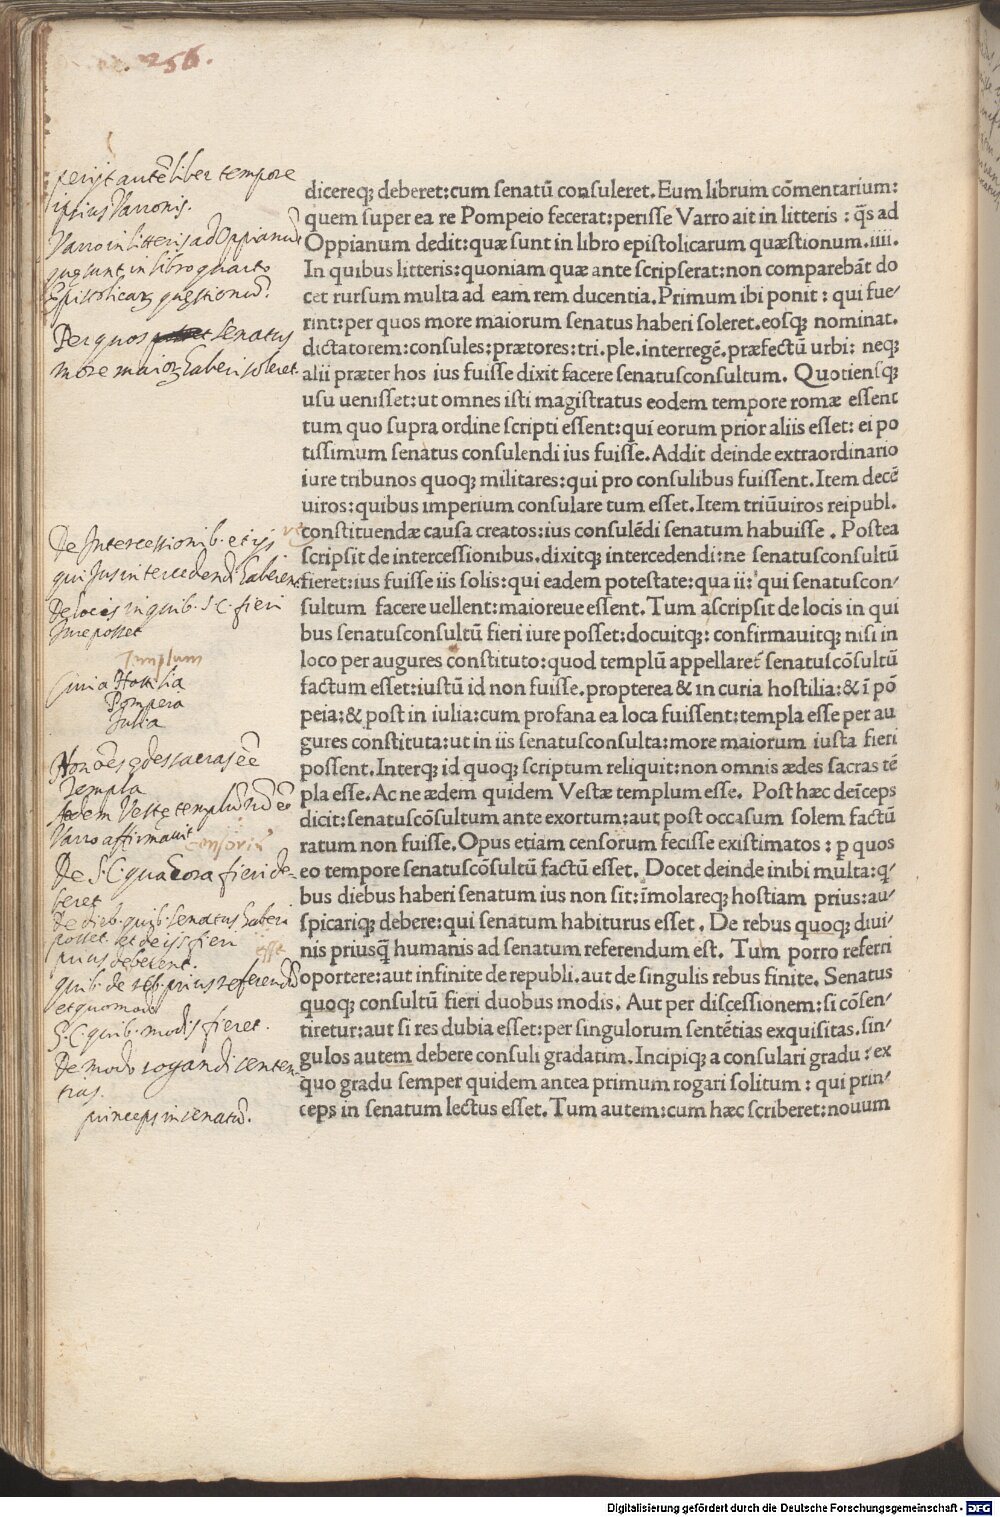 256.
perijt autē liber tempore
ipsius Varronis.
Varro in litteris ad Oppianum
quę sunt in libro quarto
Epistolicarꝝ quęstionū.
Per quos senatus
more maioꝝ haberi soleret.
De Intercessionib. et ijs
qui Jus intercedendi haberent
De locis in quib. S C fieri
Jure posset
Templum
Curia Hostilia
Pompeia
Julia
Non oēs ędes sacras eē
Templa
Aedem Vestę templū nō eē
Varro affirmauit
Censoriū
De S.C. qua hora fieri de-
beret
De dieb. quib. senatus haberi
posset et de ijs fieri
prius deberent.
quib. de reb. prius referendū
et quomodo
S.C. quib. modis fieret.
De modo rogandi senten-
tias.
princeps in senatū.
dicereq; deberet:cum senatū consuleret.Eum librum cōmentarium:
quem super ea re Pompeio fecerat:perisse Varro ait in litteris : q̄s ad
Oppianum dedit:quæ sunt in libro epistolicarum quæstionum.iiii.
In quibus litteris:quoniam quæ ante scripserat:non comparebāt do
cet rursum multa ad eam rem ducentia.Primum ibi ponit : qui fue/
rint:per quos more maiorum senatus haberi soleret.eosq; nominat.
dictatorem:consules:prætores:tri.ple.interregē.præfectū urbi: neq;
alii præter hos ius fuisse dixit facere senatusconsultum. Quotiensq;
usu uenisset:ut omnes isti magistratus eodem tempore romæ essent
tum quo supra ordine scripti essent:qui eorum prior aliis esset: ei po
tissimum senatus consulendi ius fuisse.Addit deinde extraordinario
iure tribunos quoq; militares:qui pro consulibus fuissent.Item decē
uiros:quibus imperium consulare tum esset.Item triūuiros reipubl.
constituendæ causa creatos:ius consulēdi senatum habuisse . Postea
scripsit de intercessionibus.dixitq; intercedendi:ne senatusconsultū
fieret:ius fuisse iis solis:qui eadem potestate:qua ii: qui senatuscon/
sultum facere uellent:maioreue essent.Tum ascripsit de locis in qui
bus senatusconsultū fieri iure posset:docuitq;: confirmauitq; nisi in
loco per augures constituto:quod templū appellaret̄ senatuscōsultū
factum esset:iustū id non fuisse.propterea & in curia hostilia:& ī pō
peia:& post in iulia:cum profana ea loca fuissent:templa esse per au
gures constituta:ut in iis senatusconsulta:more maiorum iusta fieri
possent.Interq; id quoq; scriptum reliquit:non omnis ædes sacras tē
pla esse.Ac ne ædem quidem Vestæ templum esse. Post hæc deīceps
dicit:senatuscōsultum ante exortum:aut post occasum solem factū
ratum non fuisse.Opus etiam censorum fecisse existimatos : ꝑ quos
eo tempore senatuscōsultū factū esset. Docet deinde inibi multa:q̄/
bus diebus haberi senatum ius non sit:īmolareq; hostiam prius:au/
spicariq; debere:qui senatum habiturus esset . De rebus quoq; diui/
nis priusq̄ humanis ad senatum referendum est. Tum porro referri
oportere:aut infinite de republi.aut de singulis rebus finite. Senatus
quoq; consultū fieri duobus modis. Aut per discessionem:si cōsen/
tiretur:aut si res dubia esset:per singulorum sentētias exquisitas.sin/
gulos autem debere consuli gradatim.Incipiq; a consulari gradu : ex
quo gradu semper quidem antea primum rogari solitum : qui prin/
ceps in senatum lectus esset.Tum autem:cum hæc scriberet:nouum
Digitalisierung gefördert durch die Deutsche Forschungsgemeinschaft - DFG